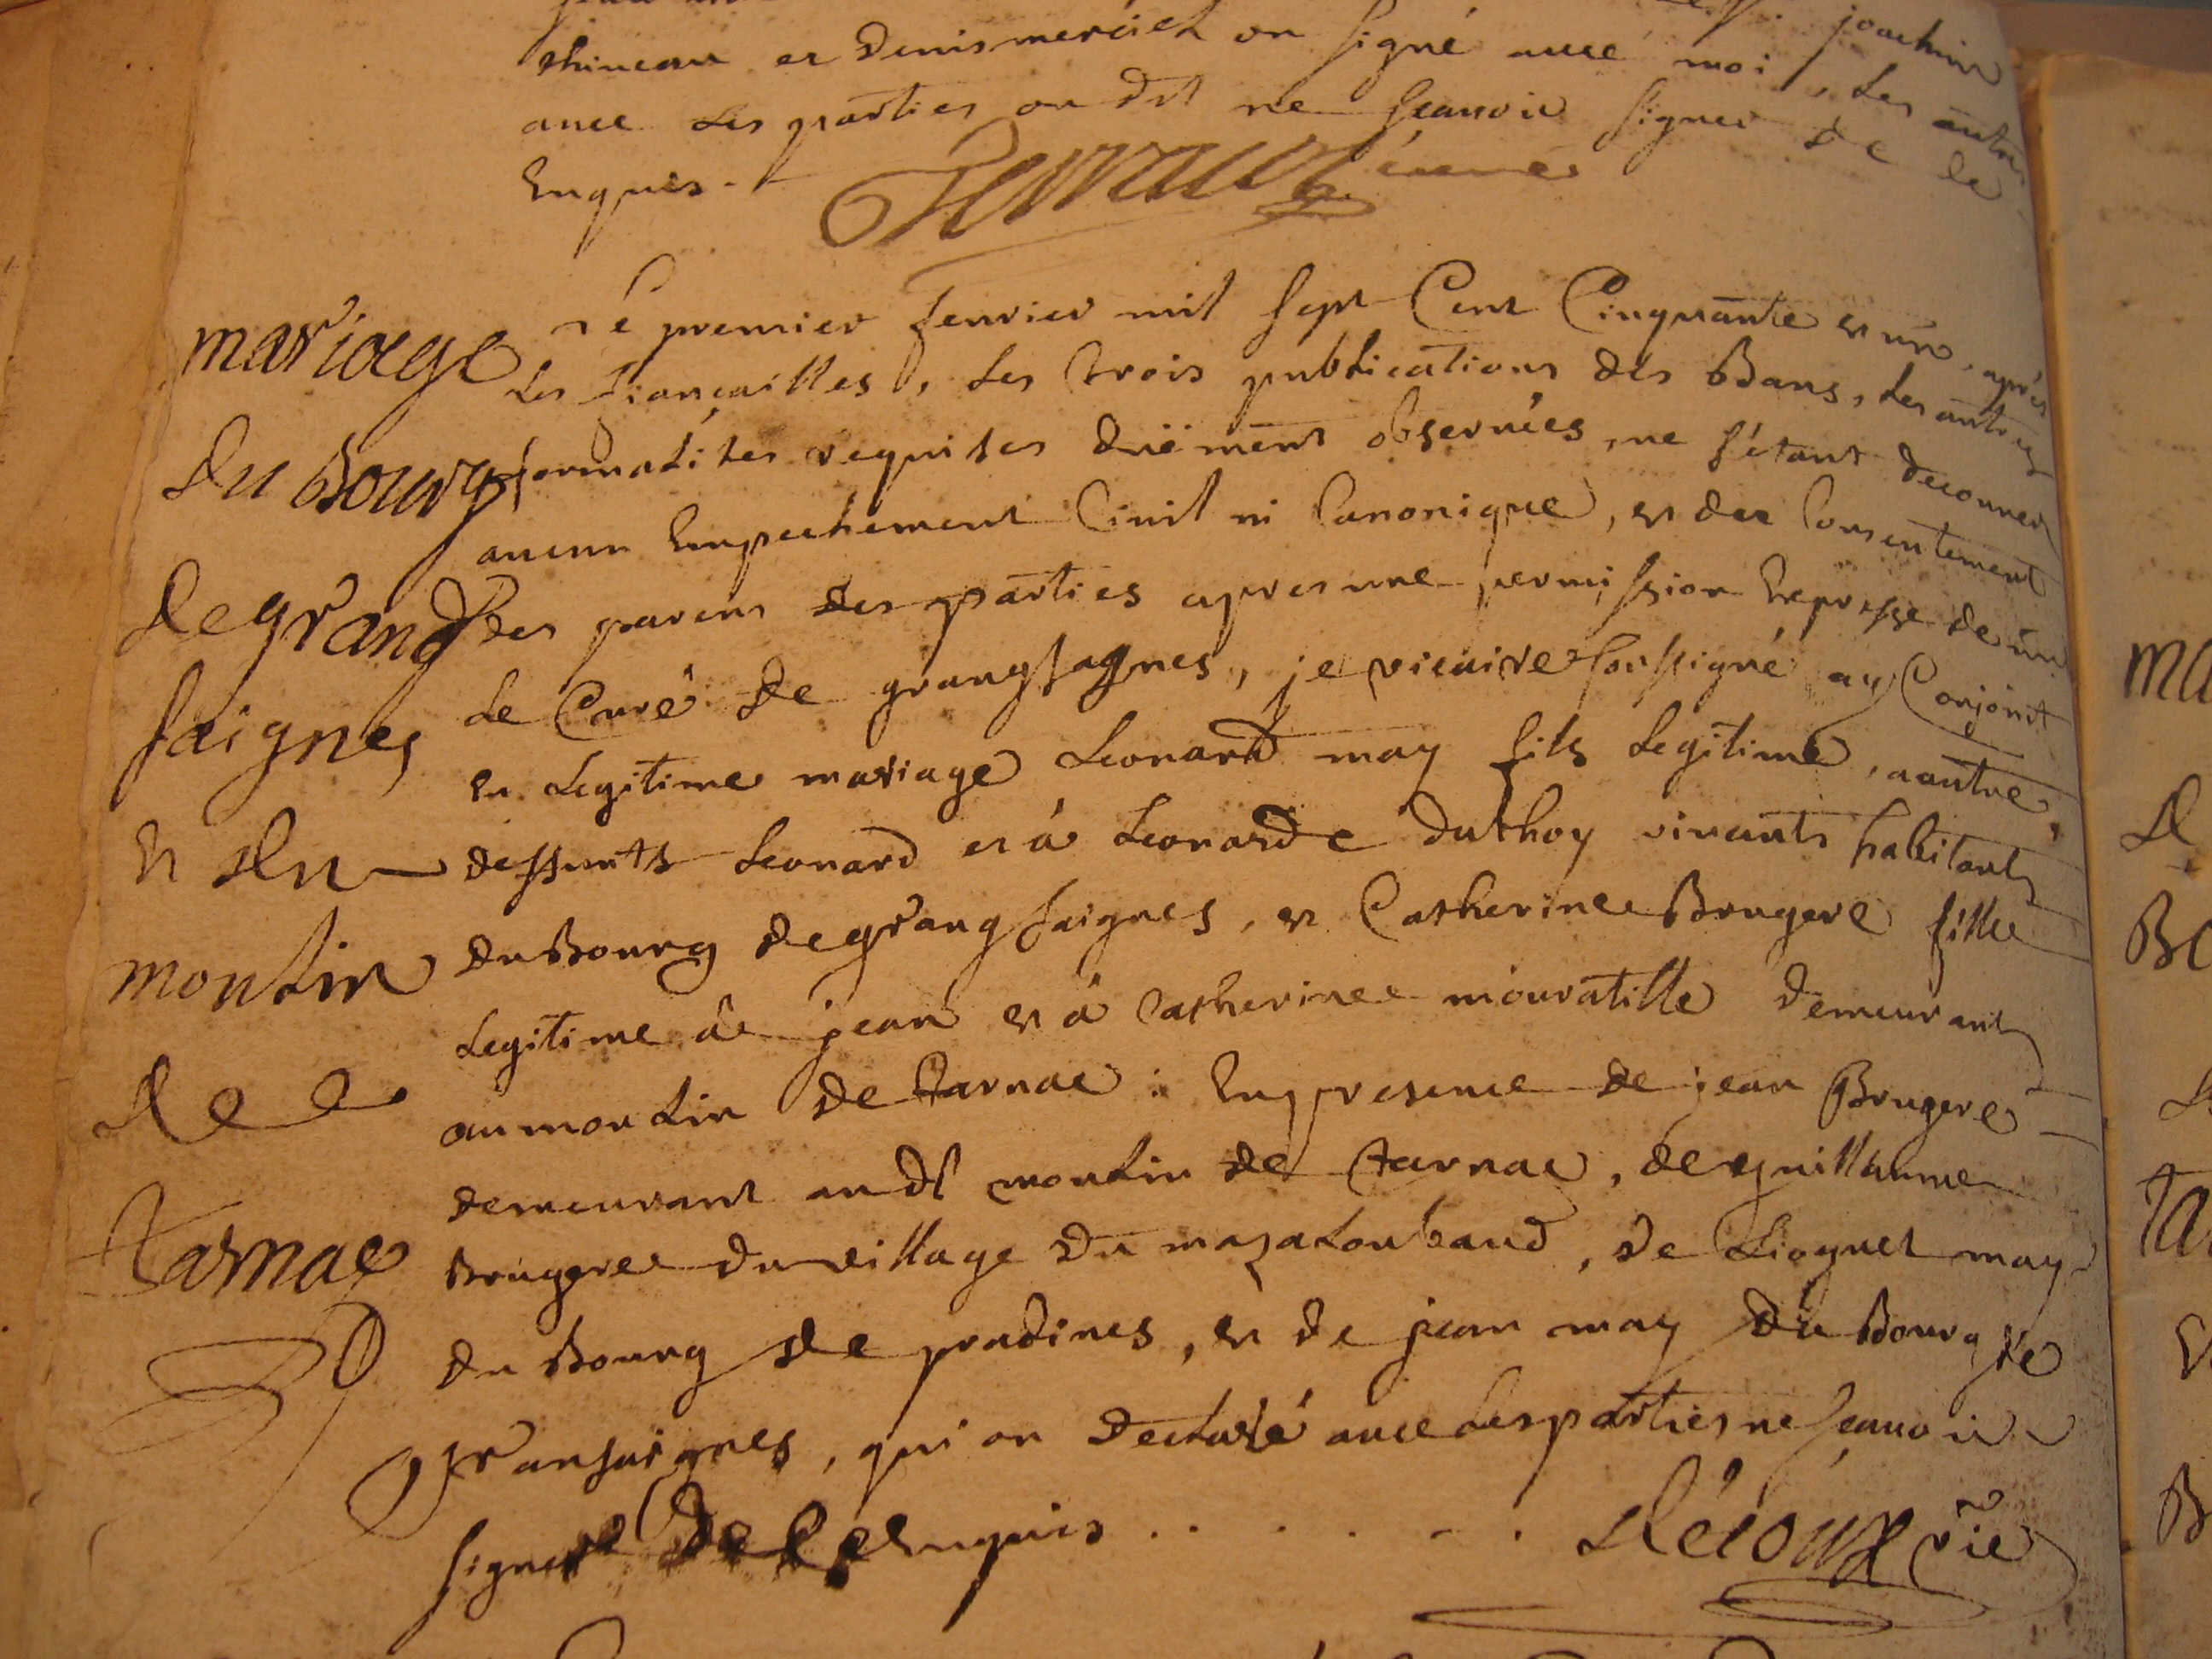 joachin
thineaux et Denis mercier on signé avec moi, Les autres
avec Les parties on dit ne sçauoir signer de ce
Enquis.
mariage
du Bourg
de grand
saignes
et du
moulin
de
tarnac
Le premier feurier mil sept Cent Cinquante et un, après
Les fiançailles, Les trois publications des Bans, Les autres
formalites requises duëment obseruées, ne s'étant decouuert
aucun Empechement Ciuil ni Canonique, et du Consentement
des parens des parties apres une permission Expresse de
Le Curé de grangsagnes, je vicaire soussigné ay Conjoint
en Legitime mariage Leonard may fils Legitime, a autre,
deffunts Leonard et à Leonarde duthoy viuants habitants
du Bourg de grangsaignes, et Catherine Brugere fille
Legitime à jean et à Catherine mouratille demeurant
au moulin de tarnac : En presence de jean Brugere
demeurant audt moulin de tarnac, de guillaume
Brugere du village du mazaloubaud, de Liognet may
du Bourg de pradines, et de jean may du Bourg de
gransaignes, qui on declaré auec Les parties ne sçauoir
signer de ce Enquis . . . . . . Découx vic